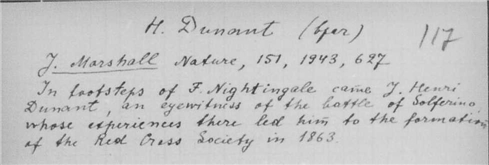 H. Dunant (bger) 117
J. Marshall Nature, 151, 1943, 627
In footsteps of F. Nightingale came J. Henri
Dunant, an eyewitness of the battle of Solferino,
whose experiences there led him to the formation
of the Red Cross Society in 1863.